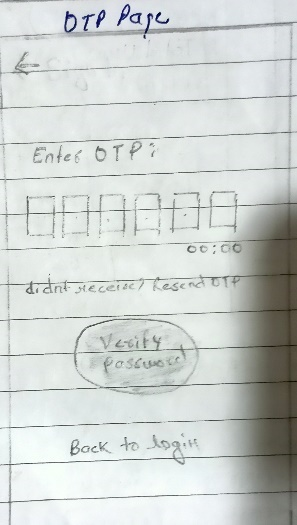 OTP Page
Enter OTP:
00:00
didnt receive? Resend OTP
Verify
Password
Back to login